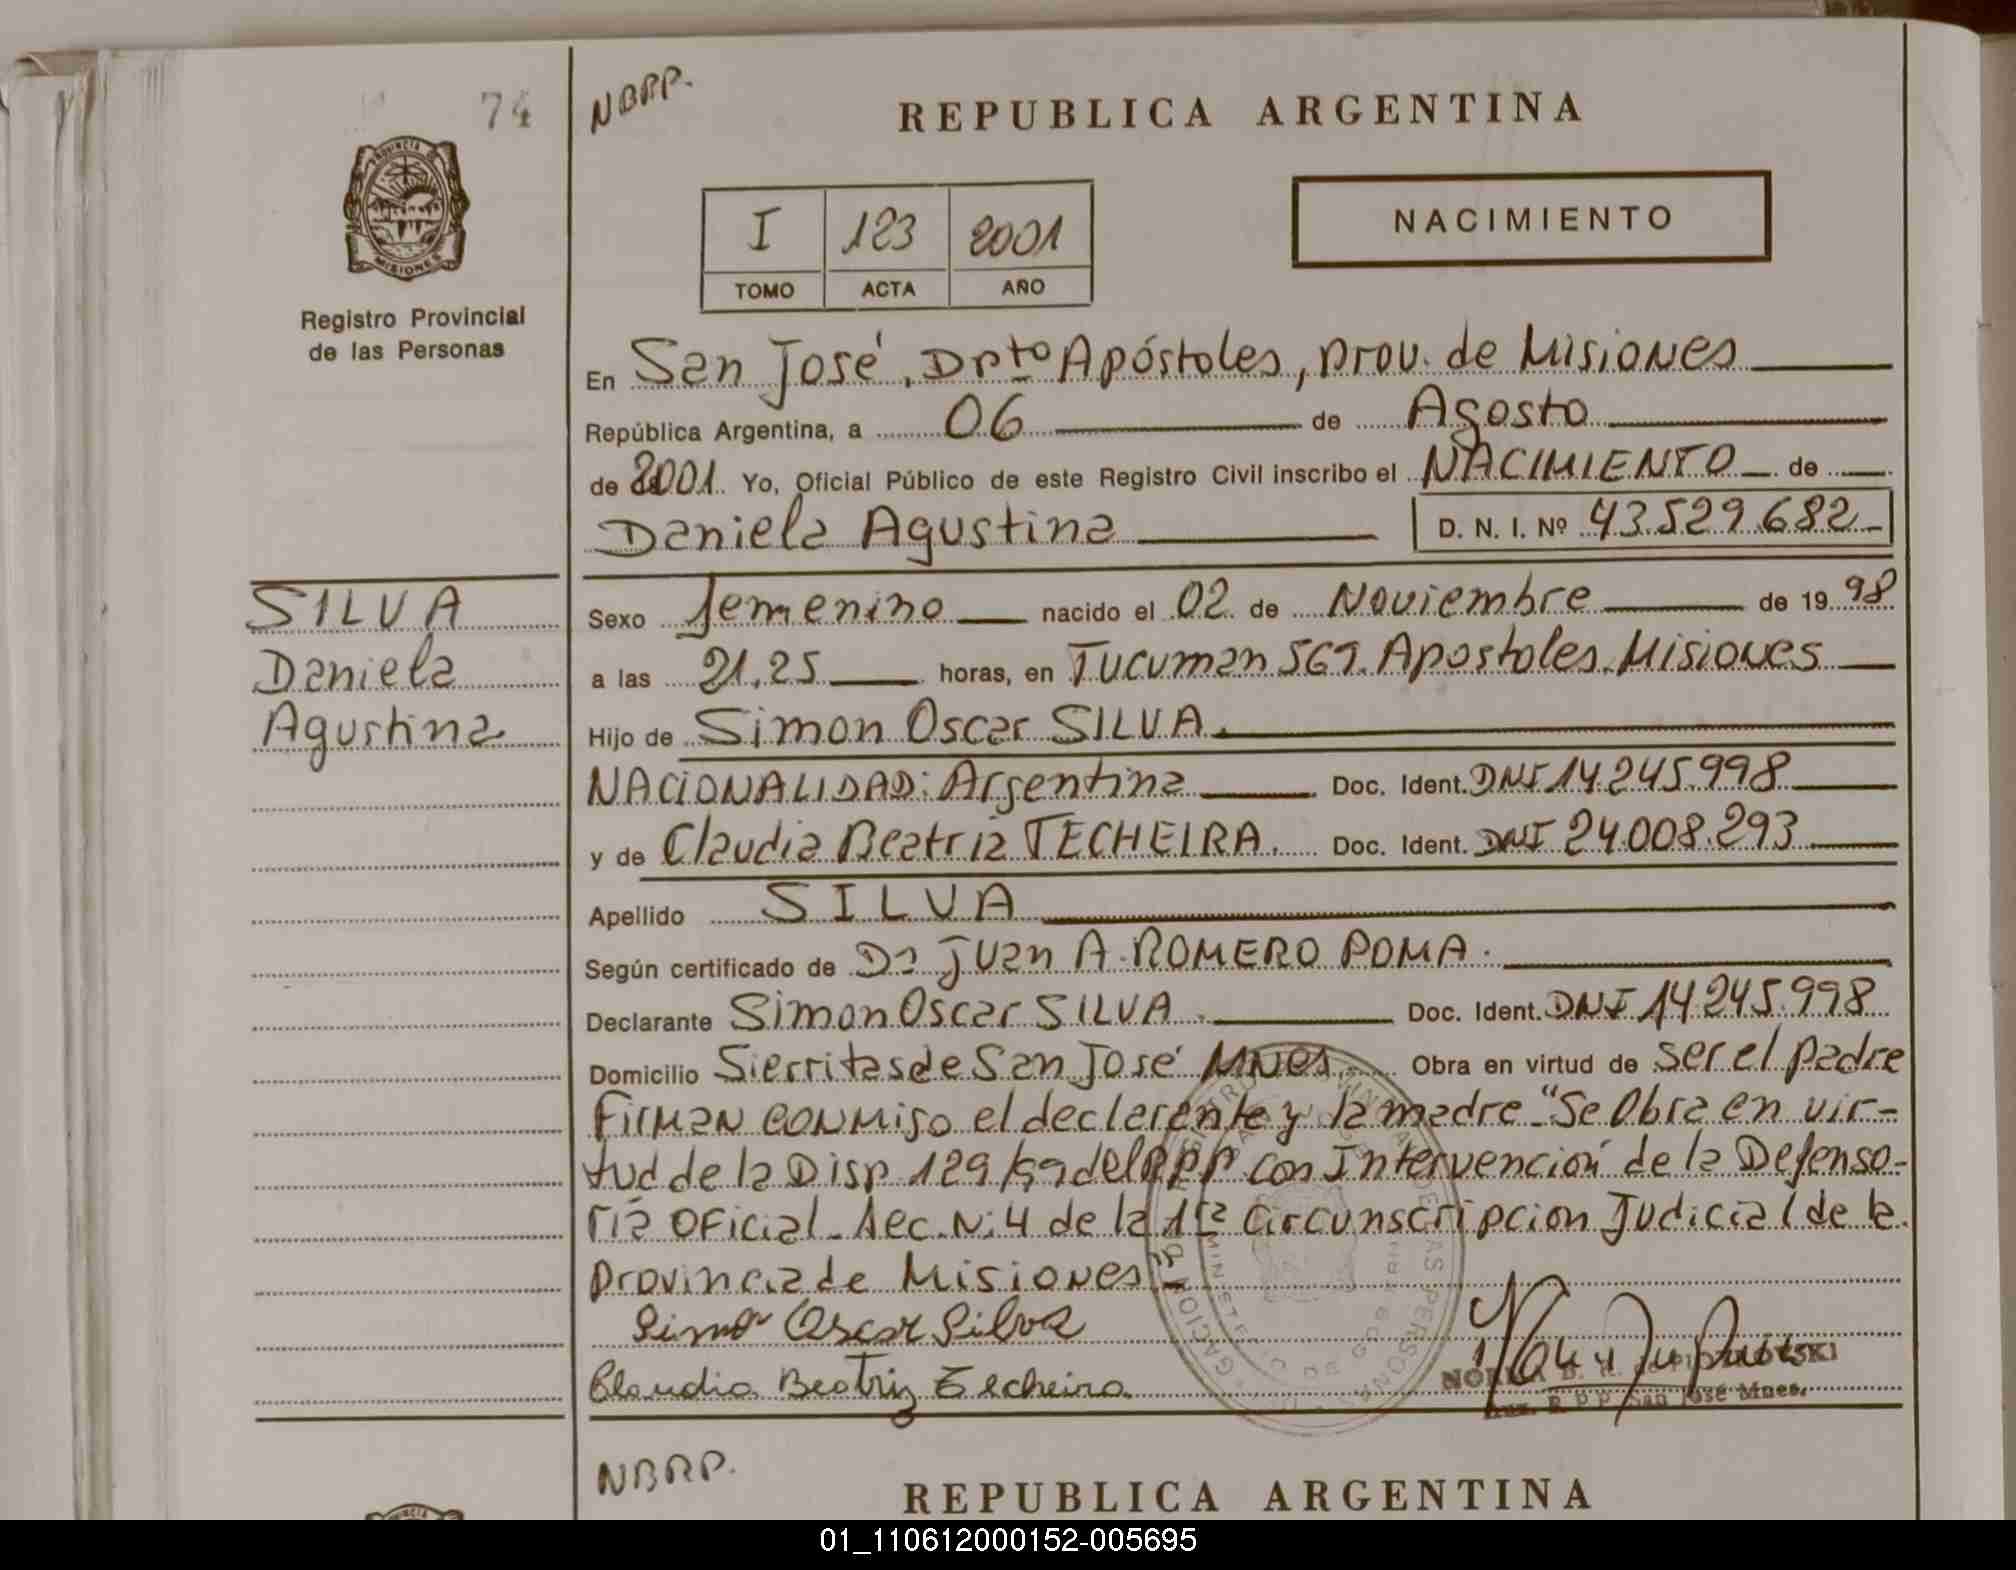 74
NBRP.
REPUBLICA ARGENTINA
PROVINCIA DE
MISIONES
Registro Provincial
de las Personas
I 123 2001
TOMO ACTA AÑO
NACIMIENTO
En San José, Dpto Apóstoles, prov. de Misiones
República Argentina, a 06 de Agosto
de 2001. Yo, Oficial Público de este Registro Civil inscribo el NACIMIENTO de
Daniela Agustina D. N. I. Nº 43.529.682
SILVA
Daniela
Agustina
Sexo femenino nacido el 02 de Noviembre de 1998
a las 21,25 horas, en Tucuman 569. Apostoles. Misiones
Hijo de Simon Oscar SILVA.
NACIONALIDAD: Argentina Doc. Ident. DNI 14.245.998
y de Claudia Beatriz TECHEIRA. Doc. Ident. DNI 24.008.293
Apellido SILVA
Según certificado de Dr Juan A. ROMERO POMA.
Declarante Simon Oscar SILVA. Doc. Ident. DNI 14.245.998
Domicilio Sierritas de San José Mnes. Obra en virtud de ser el padre
Firman conmigo el declarante y la madre "Se Obra en vir-
tud de la Disp 129/99 del RPP con Intervención de la Defenso-
ria Oficial. Sec. N: 4 de la 1ra Circunscripcion Judicial de la
provincia de Misiones
Simon Oscar Silva
Claudia Beatriz Techeira
R P P San José Mnes.
NBRP.
REPUBLICA ARGENTINA
01_110612000152-005695